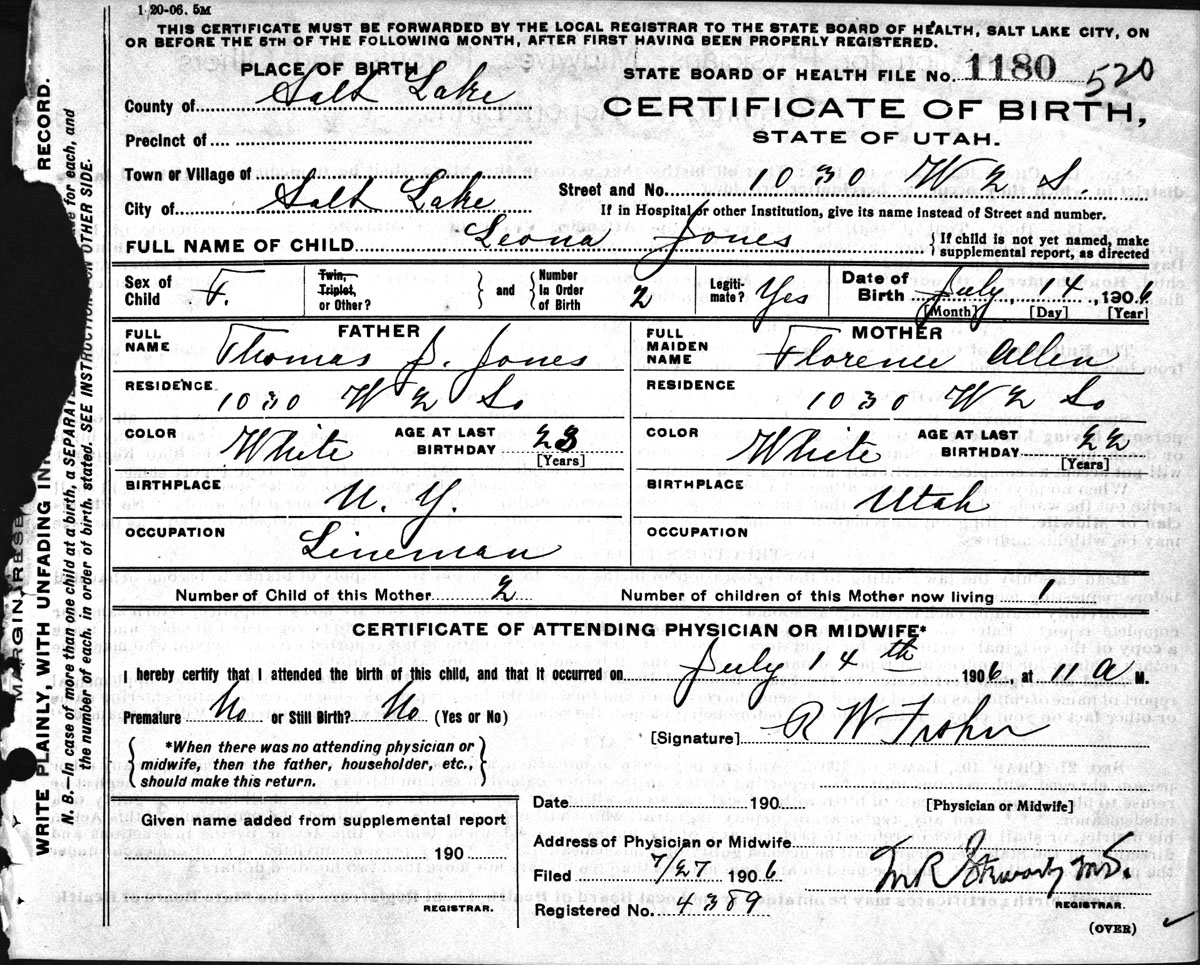 1 20-06. 5M
THIS CERTIFICATE MUST BE FORWARDED BY THE LOCAL REGISTRAR TO THE STATE BOARD OF HEALTH, SALT LAKE CITY, ON
OR BEFORE THE 5TH OF THE FOLLOWING MONTH, AFTER FIRST HAVING BEEN PROPERLY REGISTERED.
PLACE OF BIRTH
STATE BOARD OF HEALTH FILE No. 1180 520
County of Salt Lake
CERTIFICATE OF BIRTH,
STATE OF UTAH.
Precinct of
Town or Village of
Street and No. 1030 W 2 S.
City of Salt Lake
If in Hospital or other Institution, give its name instead of Street and number.
FULL NAME OF CHILD Leona Jones { If child is not yet named, make
supplemental report, as directed
Sex of Child F.
Twin, Triplet, or Other?
and
Number In Order of Birth 2
Legiti-mate? Yes
Date of Birth July 14, 1906
[Month] [Day] [Year]
FATHER
FULL NAME Thomas J. Jones
MOTHER
FULL MAIDEN NAME Florence Allen
RESIDENCE 1030 W 2 So
RESIDENCE 1030 W 2 So
COLOR White AGE AT LAST BIRTHDAY 23 [Years]
COLOR White AGE AT LAST BIRTHDAY 22 [Years]
BIRTHPLACE N. Y.
BIRTHPLACE Utah
OCCUPATION Lineman
OCCUPATION
Number of Child of this Mother 2 Number of children of this Mother now living 1
CERTIFICATE OF ATTENDING PHYSICIAN OR MIDWIFE*
I hereby certify that I attended the birth of this child, and that it occurred on July 14th 1906 at 11 a M.
Premature No or Still Birth? No (Yes or No)
[Signature] R W
{ *When there was no attending physician or
midwife, then the father, householder, etc.,
should make this return. }
Date 190 [Physician or Midwife]
Given name added from supplemental report
190
REGISTRAR.
Address of Physician or Midwife
Filed 7/27 1906
Registered No. 4389 REGISTRAR.
(OVER)
MARGIN RESE
WRITE PLAINLY, WITH UNFADING IN RECORD.
N. B.—In case of more than one child at a birth, a SEPARATE for each, and
the number of each, in order of birth, stated. SEE INSTRUCTION ON OTHER SIDE.